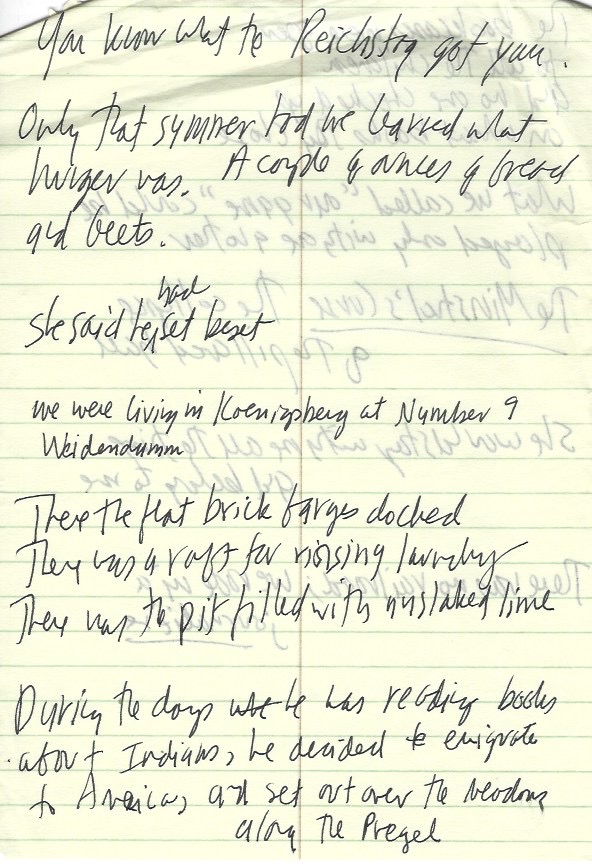 You know what the Reichstag got you.
Only that summer had we learned what
hunger was. A couple of ounces of bread
and beets.
had
she said he set beset
we were living in Koenigsberg at Number 9
Weidendamm
There the flat brick barges docked
There was a raft for rinsing laundry
There was the pit filled with unslaked lime
During the days he was reading books
about Indians, he decided to emigrate
to America, and set out over the meadows
along the Pregel